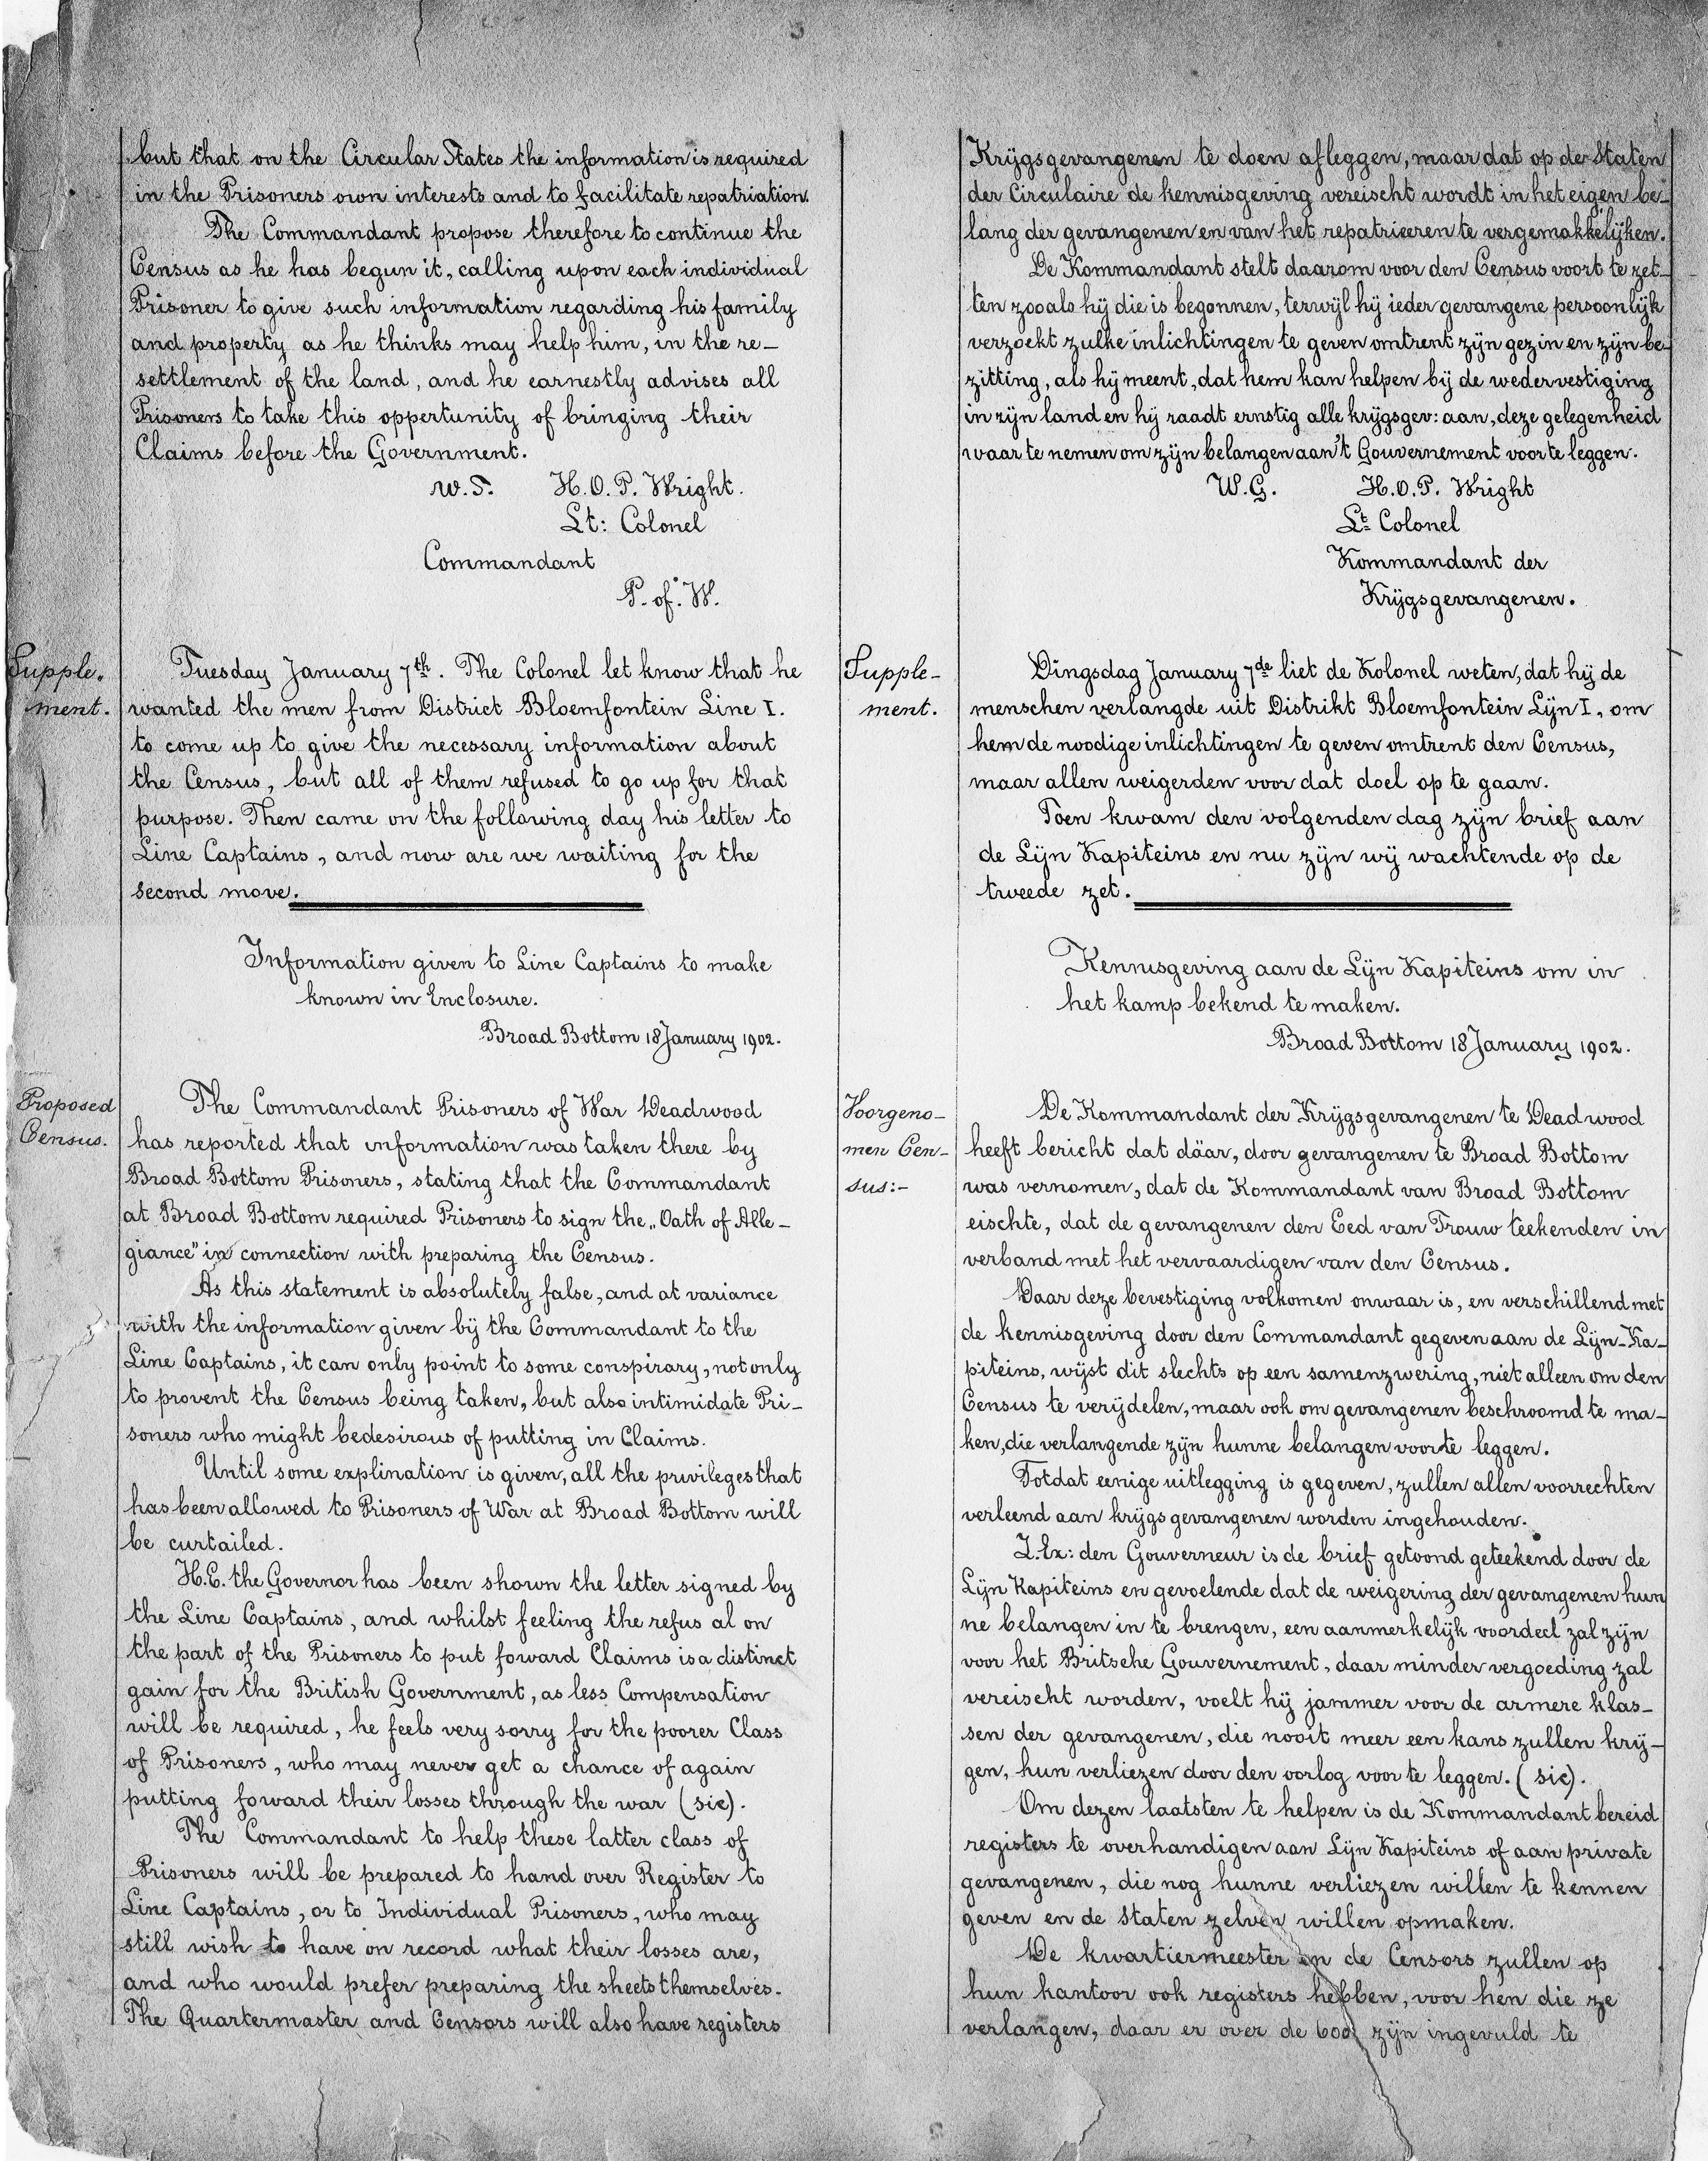 but that on the Circular States the information is required
in the Prisoners own interests and to facilitate repatriation.
The Commandant propose therefore to continue the
Census as he has begun it, calling upon each individual
Prisoner to give such information regarding his family
and property as he thinks may help him, in the re-
settlement of the land, and he earnestly advises all
Prisoners to take this oppertunity of bringing their
Claims before the Government.
W.S. H.O.P. Wright.
Lt: Colonel
Commandant
P. of. W.
Supple-
ment.
Tuesday January 7th. The Colonel let know that he
wanted the men from District Bloemfontein Line I.
to come up to give the necessary information about
the Census, but all of them refused to go up for that
purpose. Then came on the following day his letter to
Line Captains, and now are we waiting for the
second move.
Information given to Line Captains to make
known in Enclosure.
Broad Bottom 18 January 1902.
Proposed
Census.
The Commandant Prisoners of War Deadwood
has reported that information was taken there by
Broad Bottom Prisoners, stating that the Commandant
at Broad Bottom required Prisoners to sign the „Oath of Alle-
giance" in connection with preparing the Census.
As this statement is absolutely false, and at variance
with the information given by the Commandant to the
Line Captains, it can only point to some conspirary, not only
to provent the Census being taken, but also intimidate Pri-
soners who might be desirous of putting in Claims.
Until some explination is given, all the privileges that
has been allowed to Prisoners of War at Broad Bottom will
be curtailed.
H.E. the Governor has been shown the letter signed by
the Line Captains, and whilst feeling the refus al on
the part of the Prisoners to put foward Claims is a distinct
gain for the British Government, as less Compensation
will be required, he feels very sorry for the poorer Class
of Prisoners, who may never get a chance of again
putting foward their losses through the war (sic).
The Commandant to help these latter class of
Prisoners will be prepared to hand over Register to
Line Captains, or to Individual Prisoners, who may
still wish to have on record what their losses are,
and who would prefer preparing the sheets themselves.
The Quartermaster and Censors will also have registers
Krijgsgevangenen te doen afleggen, maar dat op de Staten
der Circulaire de kennisgeving vereischt wordt in het eigen be-
lang der gevangenen en van het repatrieeren te vergemakkelijken.
De Kommandant stelt daarom voor den Census voort te zet-
ten zooals hij die is begonnen, terwijl hij ieder gevangene persoonlijk
verzoekt zulke inlichtingen te geven omtrent zijn gezin en zijn be-
zitting, als hij meent, dat hem kan helpen bij de wedervestiging
in zijn land en hij raadt ernstig alle krijgsgev: aan, deze gelegenheid
waar te nemen om zijn belangen aan 't Gouvernement voor te leggen.
W.G. H.O.P. Wright
Lt. Colonel
Kommandant der
Krijgsgevangenen.
Supple-
ment.
Dingsdag January 7de liet de Kolonel weten, dat hij de
menschen verlangde uit Distrikt Bloemfontein Lijn I, om
hem de noodige inlichtingen te geven omtrent den Census,
maar allen weigerden voor dat doel op te gaan.
Toen kwam den volgenden dag zijn brief aan
de Lijn Kapiteins en nu zijn wij wachtende op de
tweede zet.
Kennisgeving aan de Lijn Kapiteins om in
het kamp bekend te maken.
Broad Bottom 18 January 1902.
Voorgeno-
men Cen-
sus:-
De Kommandant der Krijgsgevangenen te Deadwood
heeft bericht dat däar, door gevangenen te Broad Bottom
was vernomen, dat de Kommandant van Broad Bottom
eischte, dat de gevangenen den Eed van Trouw teekenden in
verband met het vervaardigen van den Census.
Daar deze bevestiging volkomen onwaar is, en verschillend met
de kennisgeving door den Commandant gegeven aan de Lijn-Ka-
piteins, wijst dit slechts op een samenzwering, niet alleen om den
Census te verijdelen, maar ook om gevangenen beschroomd te ma-
ken, die verlangende zijn hunne belangen voor te leggen.
Totdat eenige uitlegging is gegeven, zullen allen voorrechten
verleend aan krijgsgevangenen worden ingehouden.
Z.Ex: den Gouverneur is de brief getoond geteekend door de
Lijn Kapiteins en gevoelende dat de weigering der gevangenen hun
ne belangen in te brengen, een aanmerkelijk voordeel zal zijn
voor het Britsche Gouvernement, daar minder vergoeding zal
vereischt worden, voelt hij jammer voor de armere klas-
sen der gevangenen, die nooit meer een kans zullen krij-
gen, hun verliezen door den oorlog voor te leggen. (sic).
Om dezen laatsten te helpen is de Kommandant bereid
registers te overhandigen aan Lijn Kapiteins of aan private
gevangenen, die nog hunne verliezen willen te kennen
geven en de Staten zelven willen opmaken.
De kwartiermeester en de Censors zullen op
hun kantoor ook registers hebben, voor hen die ze
verlangen, daar er over de 600 zijn ingevuld te